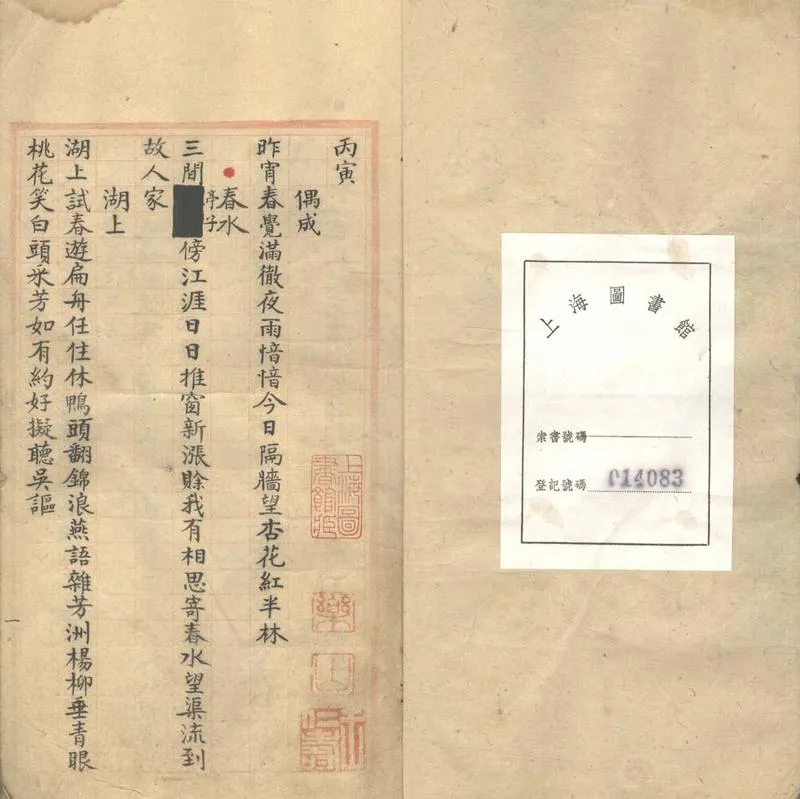 上海圖書館
索書號碼
登記號碼 014083
丙寅
偶成
昨宵春覺滿徹夜雨愔愔今日隔牆望杏花紅半林
春水
亭子
三間傍江涯日日推窗新漲賒我有相思寄春水望渠流到
故人家
湖上
湖上試春遊扁舟任住休鴨頭翻錦浪燕語雜芳洲楊柳垂青眼
桃花笑白頭采芳如有約好擬聽吳謳
一
上海圖書館藏